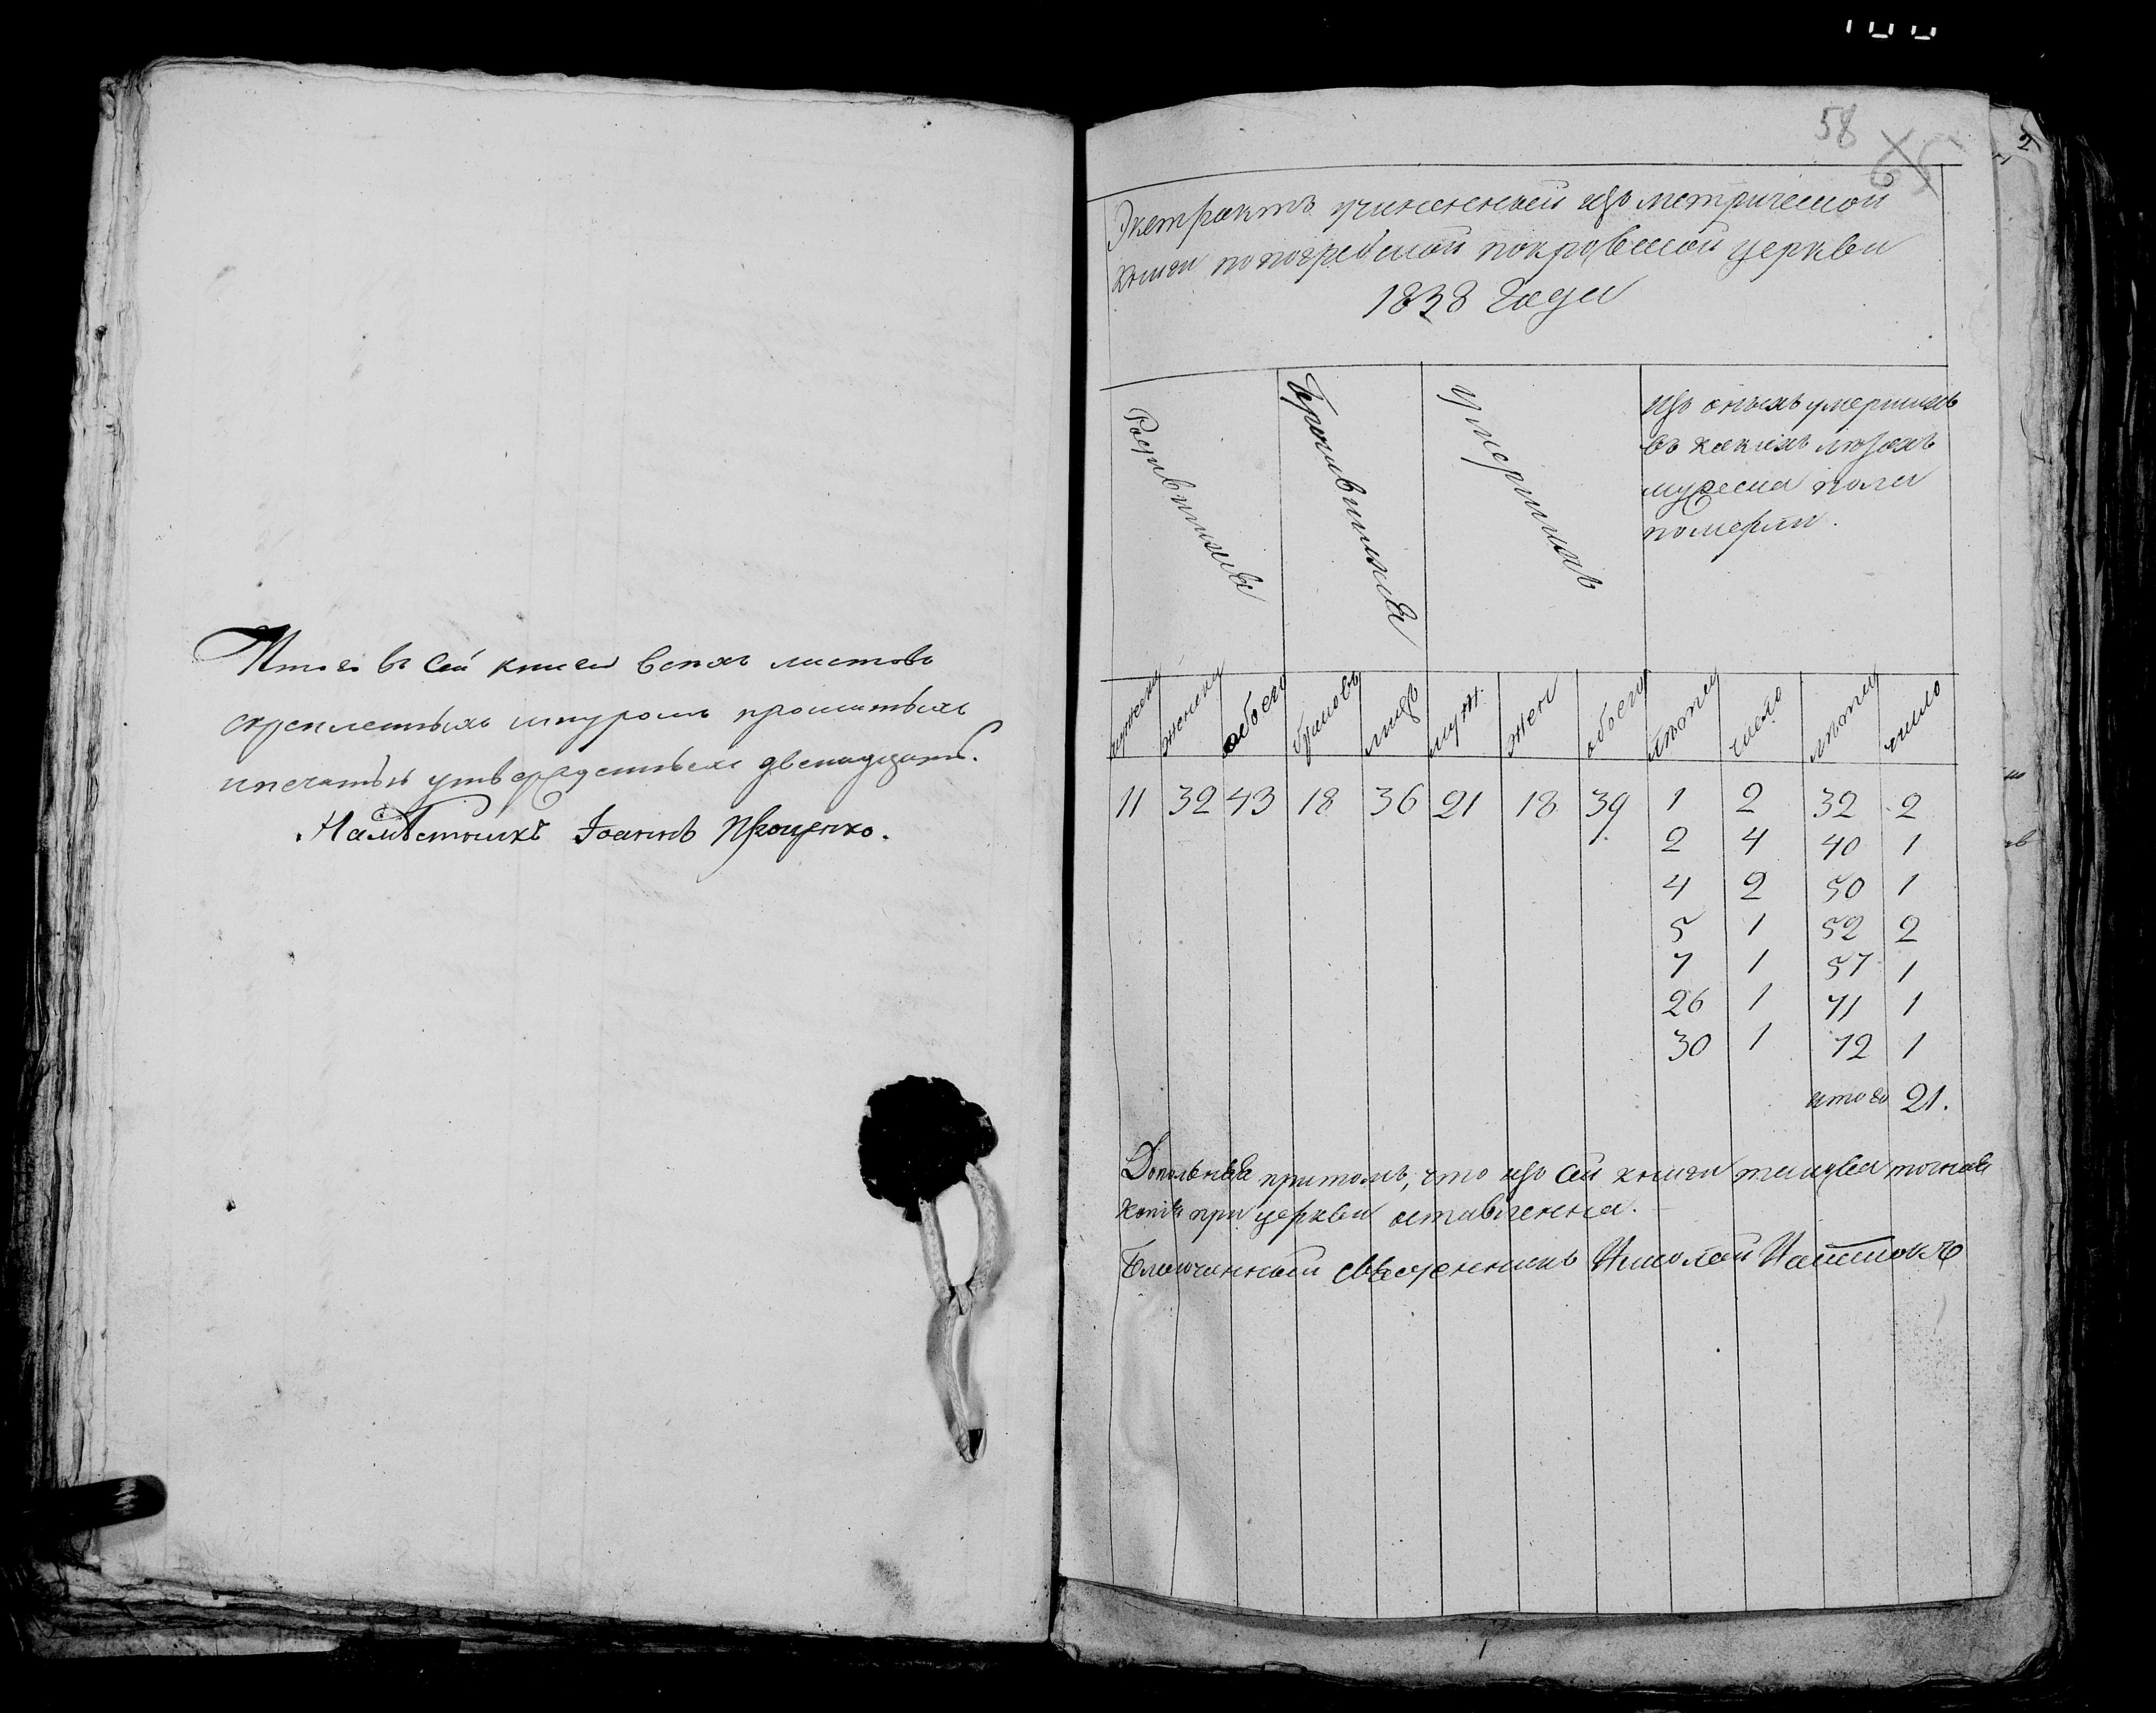 Итого въ сей книги всѣхъ листовъ
скрепленныхъ шнуромъ прошитыхъ
и печатью утвержденныхъ двенадцать.
Намѣстникъ Іоаннъ Проценко.
58
Экстрактъ учиненный изъ метрической
книги по погребской покровской церкви
1838 Года
Родившихся
Брачившихся
Умершихъ
Изъ оныхъ умершихъ
въ какихъ лѣтахъ
мужеска пола
померли.
мужеска женска обоего браковъ лицъ муж. жен обоего лѣты число лѣты число
11 32 43 18 36 21 18 39 1 2 32 2
2 4 40 1
4 2 50 1
5 1 52 2
7 1 57 1
26 1 71 1
30 1 72 1
итого 21.
при томъ, что изъ сей книги таковая точная
копія при церкви оставленна.
Благочинный священникъ Николай